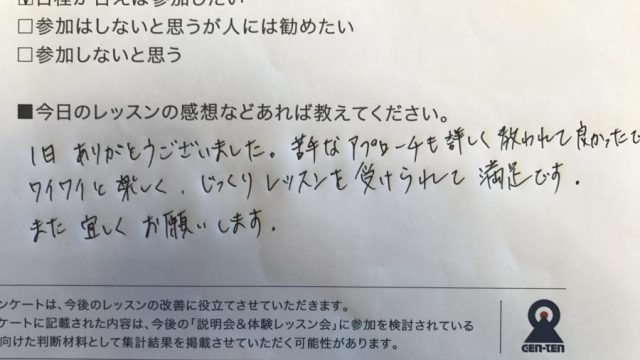 ☑日程が合えば参加したい
□参加はしないと思うが人には勧めたい
□参加しないと思う
■今日のレッスンの感想などあれば教えてください。
1日 ありがとうございました。苦手なアプローチも詳しく教われて良かったで
ワイワイと楽しく、じっくりレッスンを受けられて満足です。
また宜しくお願いします。
ンケートは、今後のレッスンの改善に役立てさせていただきます。
ケートに記載された内容は、今後の「説明会&体験レッスン会」に参加を検討されている
向けた判断材料として集計結果を掲載させていただく可能性があります。
GEN-TEN